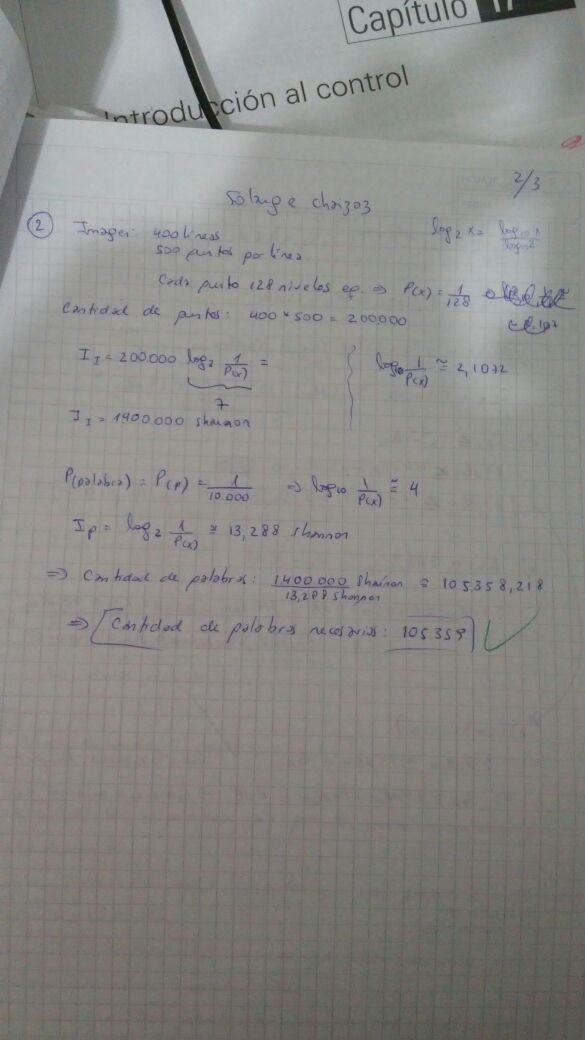 Capítulo 17
Introducción al control
2/3
Solange Chaizaz
② Imagen: 400 líneas
500 puntos por línea
log₂ x = log₁₀ x / log₁₀ 2
Cada punto 128 niveles eq. ⇒ P(x) = 1/128
Cantidad de puntos: 400 * 500 = 200.000
I_I = 200.000 log₂ 1/P(x) =
7
log₁₀ 1/P(x) ≅ 2,1072
I_I = 1400.000 shannon
P(palabra) = P(p) = 1/10.000 ⇒ log₁₀ 1/P(x) ≅ 4
I_P = log₂ 1/P(x) ≅ 13,288 shannon
⇒ Cantidad de palabras: 1.400.000 shannon / 13,288 shannon ≅ 105358,218
⇒ Cantidad de palabras necesarias: 105359